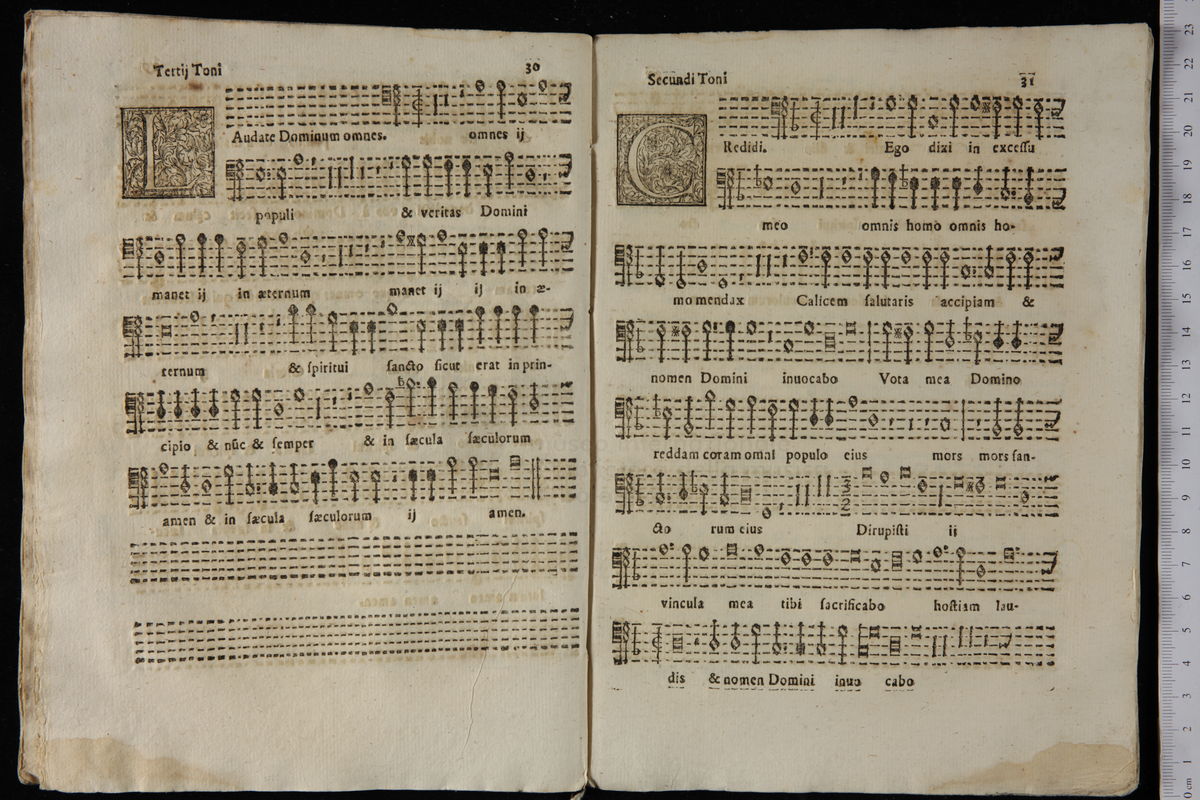 Tertij Toni 30
LAudate Dominum omnes. omnes ij
populi & veritas Domini
manet ij in æternum manet ij ij in æ-
ternum & ſpiritui ſancto ſicut erat in prin-
cipio & nũc & ſemper & in ſæcula ſæculorum
amen & in ſæcula ſæculorum ij amen.
Secundi Toni 31
CRedidi. Ego dixi in exceſſu
meo omnis homo omnis ho-
mo mendax Calicem ſalutaris accipiam &
nomen Domini inuocabo Vota mea Domino
reddam coram omni populo eius mors mors ſan-
cto rum eius Dirupiſti ij
vincula mea tibi ſacrificabo hoſtiam lau-
dis & nomen Domini inuo cabo
0 cm 1 2 3 4 5 6 7 8 9 10 11 12 13 14 15 16 17 18 19 20 21 22 23